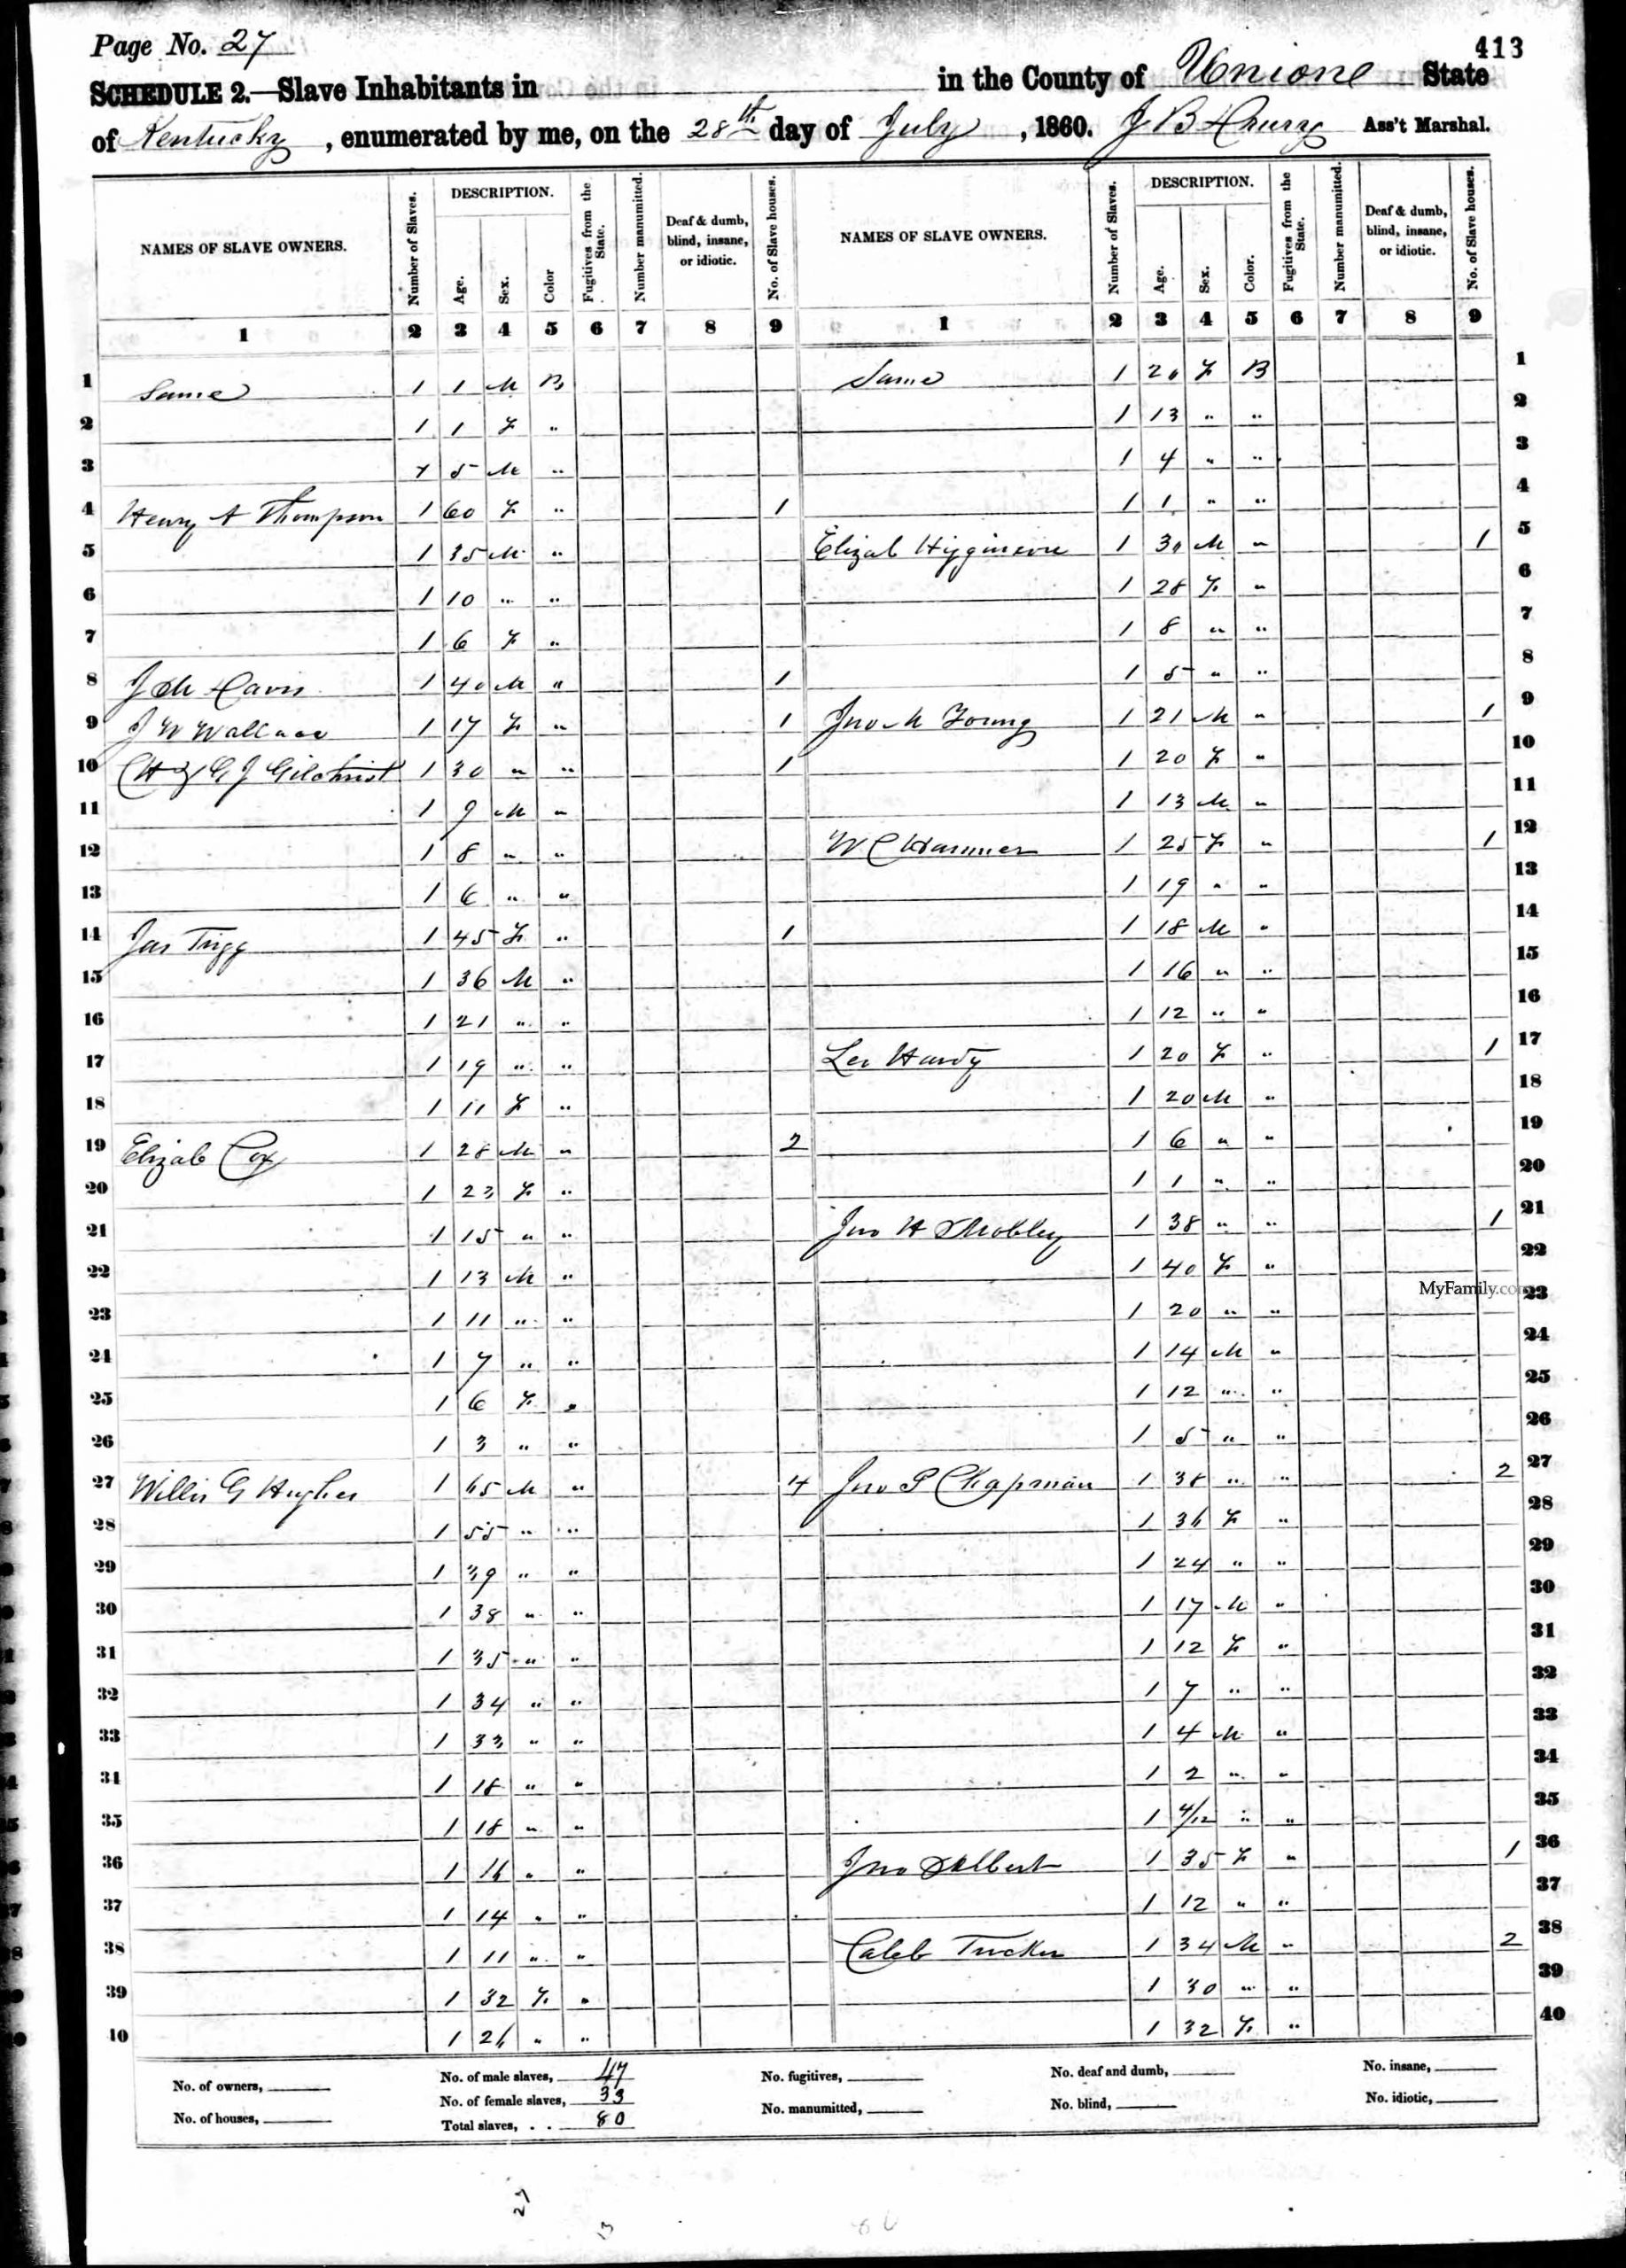 Page No. 27
413
SCHEDULE 2.—Slave Inhabitants in in the County of Unione State
of Kentucky, enumerated by me, on the 28th day of July, 1860. J B Ass't Marshal.
NAMES OF SLAVE OWNERS. Number of Slaves. DESCRIPTION. Age. Sex. Color Fugitives from the State. Number manumitted. Deaf & dumb, blind, insane, or idiotic. No. of Slave houses. NAMES OF SLAVE OWNERS. Number of Slaves. DESCRIPTION. Age. Sex. Color. Fugitives from the State. Number manumitted. Deaf & dumb, blind, insane, or idiotic. No. of Slave houses.
1 2 3 4 5 6 7 8 9 1 2 3 4 5 6 7 8 9
1 Same 1 1 M B Same 1 20 F B 1
2 1 1 F " 1 13 " " 2
3 1 5 M " 1 4 " " 3
4 Henry A Thompson 1 60 F " 1 1 1 " " 4
5 1 35 M " Elizab 1 30 M " 1 5
6 1 10 " " 1 28 F " 6
7 1 6 F " 1 8 " " 7
8 Davis 1 40 M " 1 1 5 " " 8
9 J W Wallace 1 17 F " 1 Jno M Young 1 21 M " 1 9
10 G J Gilchrist 1 30 " " 1 1 20 F " 10
11 1 9 M " 1 13 M " 11
12 1 8 " " W C 1 25 F " 1 12
13 1 6 " " 1 19 " " 13
14 Jas Trigg 1 45 F " 1 1 18 M " 14
15 1 36 M " 1 16 " " 15
16 1 21 " " 1 12 " " 16
17 1 19 " " Hardy 1 20 F " 1 17
18 1 11 F " 1 20 M " 18
19 Elizab Cox 1 28 M " 2 1 6 " " 19
20 1 23 F " 1 1 " " 20
21 1 15 " " Jno H Mobley 1 38 " " 1 21
22 1 13 M " 1 40 F " 22
MyFamily.com
23 1 11 " " 1 20 " " 23
24 1 7 " " 1 14 M " 24
25 1 6 F " 1 12 " " 25
26 1 3 " " 1 5 " " 26
27 Willis G Hughes 1 65 M " 4 Jno P Chapman 1 38 " " 2 27
28 1 55 " " 1 36 F " 28
29 1 39 " " 1 24 " " 29
30 1 38 " " 1 17 M " 30
31 1 35 " " 1 12 F " 31
32 1 34 " " 1 7 " " 32
33 1 33 " " 1 4 M " 33
34 1 18 " " 1 2 " " 34
35 1 18 " " 1 4/12 " " 35
36 1 16 " " Jno 1 35 F " 1 36
37 1 14 " " 1 12 " " 37
38 1 11 " " Caleb Tucker 1 34 M " 2 38
39 1 32 F " 1 30 " " 39
40 1 26 " " 1 32 F " 40
No. of owners, No. of male slaves, 47 No. fugitives, No. deaf and dumb, No. insane,
No. of houses, No. of female slaves, 33 No. manumitted, No. blind, No. idiotic,
Total slaves, . . 80